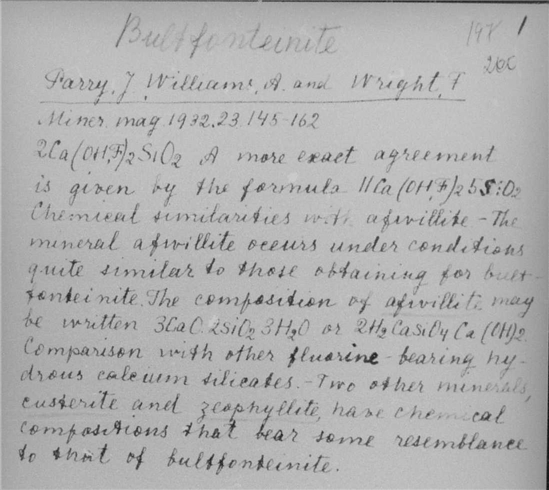 Bultfonteinite
1
200
Parry, J, Williams, A. and Wright, F
Miner. mag. 1932. 23. 145-162
2Ca(OH,F)2SiO2 A more exact agreement
is given by the formula 11Ca(OH,F)2 5SiO2
Chemical similarities with afwillite - The
mineral afwillite occurs under conditions
quite similar to those obtaining for bult-
fonteinite. The composition of afwillite may
be written 3CaO.2SiO2 3H2O or 2H2CaSiO4 Ca(OH)2.
Comparison with other fluorine - bearing hy-
drous calcium silicates. - Two other minerals,
custerite and zeophyllite, have chemical
compositions that bear some resemblance
to that of bultfonteinite.